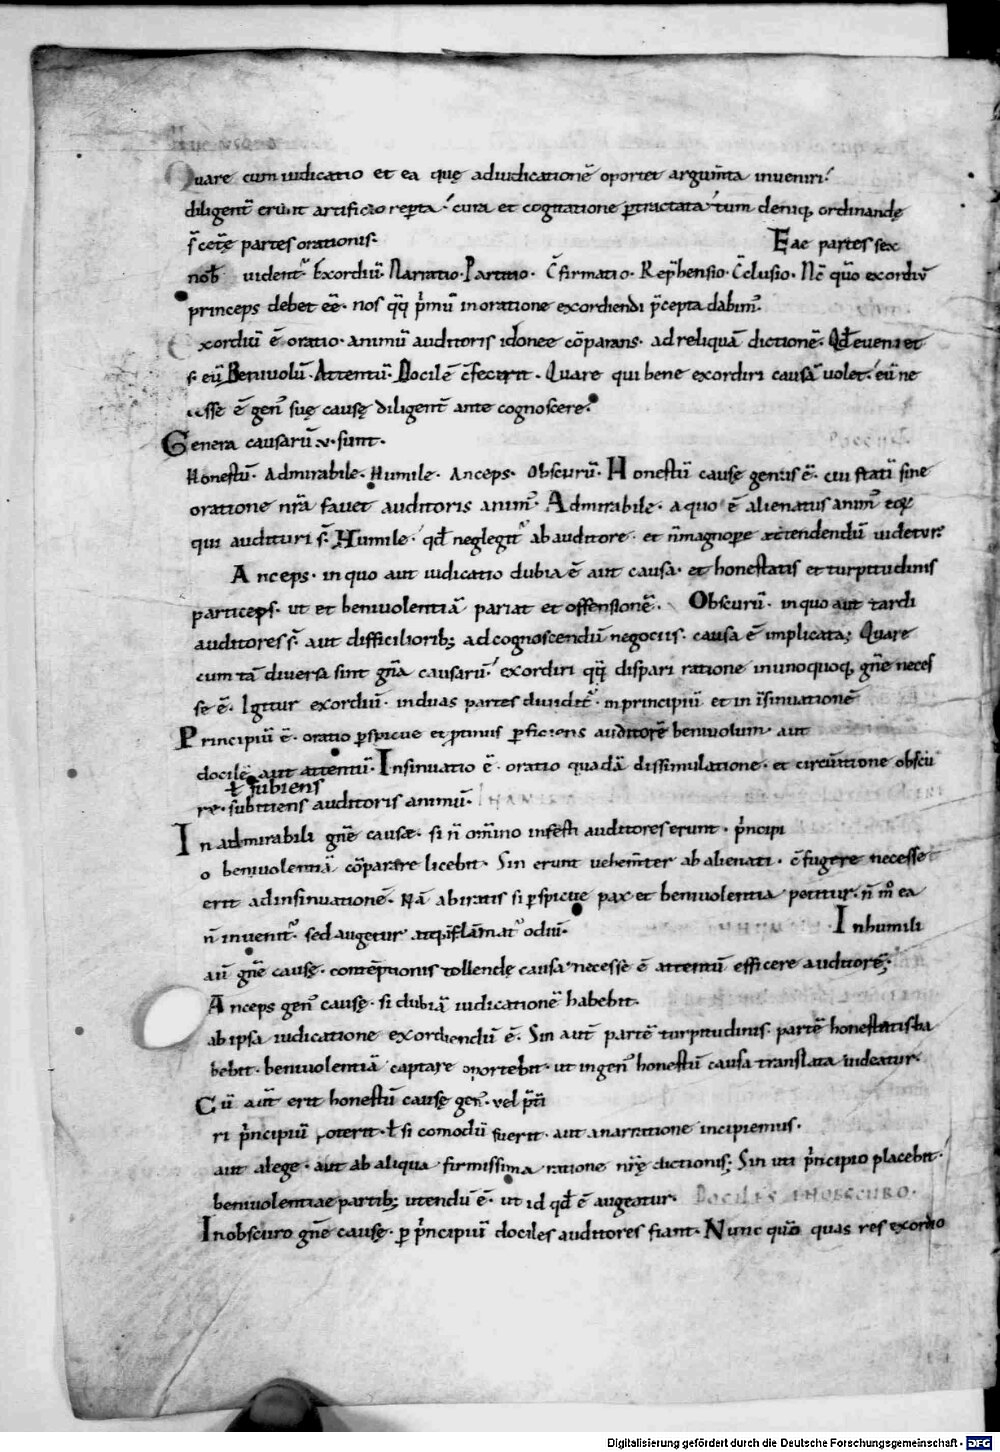 Quare cum iudicatio et ea quę adiudicationē oportet argum̄ta inveniri.
diligent̄ erunt artificio reꝑta. cura et cogitatione ꝑtractata. tum deniq; ordinandę
s̄ cet̄ę partes orationis. Eae partes sex
nob̄ uident᷑. Exordiū. Narratio. Partitio. C̄firmatio. Rep̄hensio. C̄clusio. Nc̄ qm̄o exordiū
princeps debet eē. nos qq̄ p̄mū in oratione exordiendi p̄cepta dabim᷒.
Exordiū ē oratio. animū auditoris idonee cōparans. ad reliquā dictionē. Qđ eveniet
s. eū Benivolū. Attentū. Docilē c̄fecerit. Quare qui bene exordiri causā volet. eū ne
cesse ē gen᷒ suę causę diligent̄ ante cognoscere.
Genera causarū .v. sunt.
Honestū. Admirabile. Humile. Anceps. Obscurū. Honestū cause genus ē. cui statī sine
oratione nr̄a favet auditoris anim᷒. Admirabile. a quo ē alienatus anim᷒ eoꝝ
qui audituri s̄. Humile. qđ neglegit᷑ ab auditore. et n̄ magnopere attendendū uidetur.
Anceps. in quo aut iudicatio dubia ē aut causa. et honestatis et turpitudinis
particeps. ut et benivolentiā pariat et offensionē. Obscurū. in quo aut tardi
auditores s̄. aut difficiliorib; ad cognoscendū negociis. causa ē implicata; Quare
cum tā diversa sint gn̄a causarū. exordiri qq̄ dispari ratione in unoquoq; gn̄e neces
se ē. Igitur exordiū. in duas partes dividit᷑. in principiū et in īsinuationē
Principiū ē. oratio ꝑspicue et ꝓtinus ꝑficiens auditorē benivolum. aut
docilē aut attentū. Insinuatio ē. oratio quadā dissimulatione. et circūitione obscu
ł subiens
re. subitiens auditoris animū.
In admirabili gn̄e causae. si n̄ om̄ino infesti auditores erunt. p̄ncipi
o benivolentiā cōparare licebit. Sin erunt vehem̄ter ab alienati. c̄fugere necesse
erit ad insinuationē. Nā ab iratis si ꝑspicue pax et benivolentia petitur. n̄ m̊ ea
n̄ invenit᷑. sed augetur atq; īflāmat᷑ odiū. In humili
aū gn̄e causę. contēptionis tollendę causa necesse ē attentū efficere auditorē.
Anceps gen᷒ causę. si dubiā iudicationē habebit.
ab ipsa iudicatione exordiendū ē. Sin aut̄ partē turpitudinis. partē honestatis ha
bebit. benivolentiā captare oportebit. ut in gen᷒ honestū causa translata videatur.
Cū aut̄ erit honestū causę gen᷒. vel p̄t̄i
ri p̄ncipiū poterit. ł si comodū fuerit. aut a narratione incipiemus.
aut a lege. aut ab aliqua firmissima ratione nr̄ę dictionis; Sin uti p̄ncipio placebit.
benivolentiae partib; utendū ē. ut id qđ ē augeatur. DOCILES IN OBSCURO.
In obscuro gn̄e causę. ꝑ p̄ncipiū dociles auditores fiant. Nunc qm̄o quas res exordio
Digitalisierung gefördert durch die Deutsche Forschungsgemeinschaft - DFG